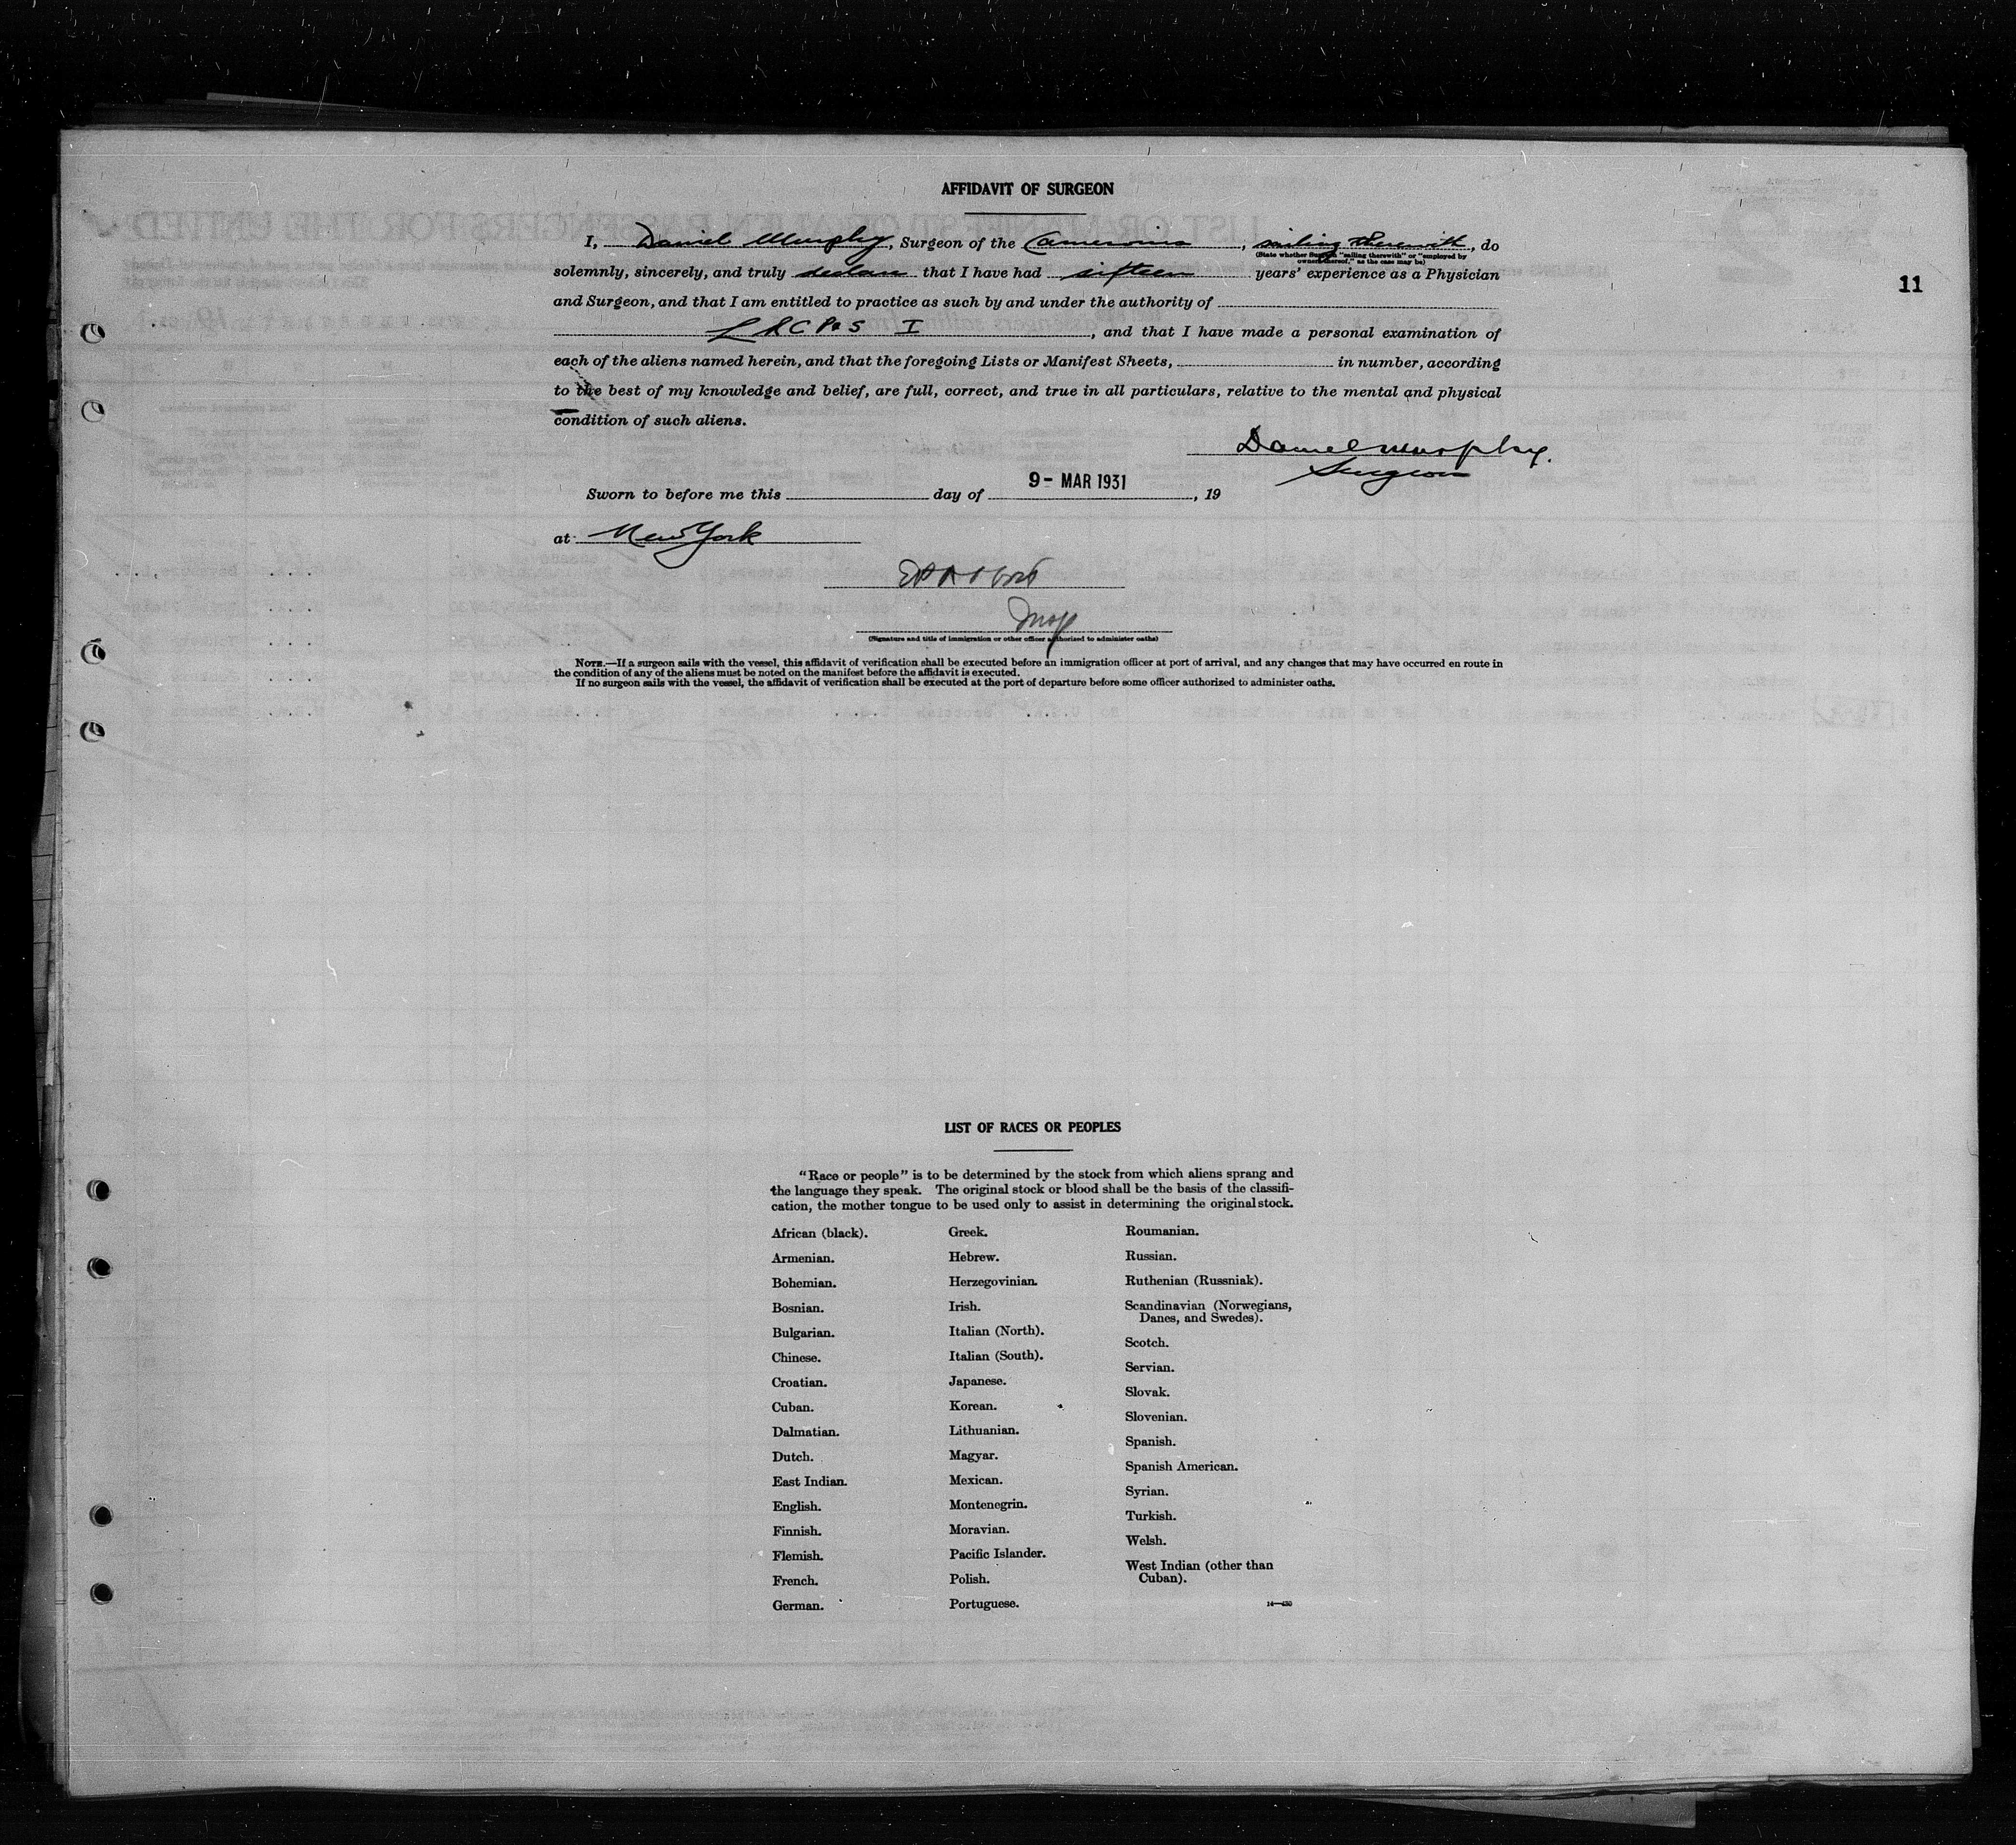 AFFIDAVIT OF SURGEON
I, Daniel Murphy, Surgeon of the Cameronia, sailing therewith, do
(State whether Surgeon "sailing therewith" or "employed by
owners thereof," as the case may be)
solemnly, sincerely, and truly declare that I have had fifteen years' experience as a Physician
and Surgeon, and that I am entitled to practice as such by and under the authority of
L R C P & S I, and that I have made a personal examination of
each of the aliens named herein, and that the foregoing Lists or Manifest Sheets, in number, according
to the best of my knowledge and belief, are full, correct, and true in all particulars, relative to the mental and physical
condition of such aliens.
Daniel Murphy.
Surgeon
Sworn to before me this day of 9- MAR 1931, 19
at New York
(Signature and title of immigration or other officer authorized to administer oaths)
NOTE.—If a surgeon sails with the vessel, this affidavit of verification shall be executed before an immigration officer at port of arrival, and any changes that may have occurred en route in
the condition of any of the aliens must be noted on the manifest before the affidavit is executed.
If no surgeon sails with the vessel, the affidavit of verification shall be executed at the port of departure before some officer authorized to administer oaths.
11
LIST OF RACES OR PEOPLES
"Race or people" is to be determined by the stock from which aliens sprang and
the language they speak. The original stock or blood shall be the basis of the classifi-
cation, the mother tongue to be used only to assist in determining the original stock.
African (black).
Armenian.
Bohemian.
Bosnian.
Bulgarian.
Chinese.
Croatian.
Cuban.
Dalmatian.
Dutch.
East Indian.
English.
Finnish.
Flemish.
French.
German.
Greek.
Hebrew.
Herzegovinian.
Irish.
Italian (North).
Italian (South).
Japanese.
Korean.
Lithuanian.
Magyar.
Mexican.
Montenegrin.
Moravian.
Pacific Islander.
Polish.
Portuguese.
Roumanian.
Russian.
Ruthenian (Russniak).
Scandinavian (Norwegians,
Danes, and Swedes).
Scotch.
Servian.
Slovak.
Slovenian.
Spanish.
Spanish American.
Syrian.
Turkish.
Welsh.
West Indian (other than
Cuban).